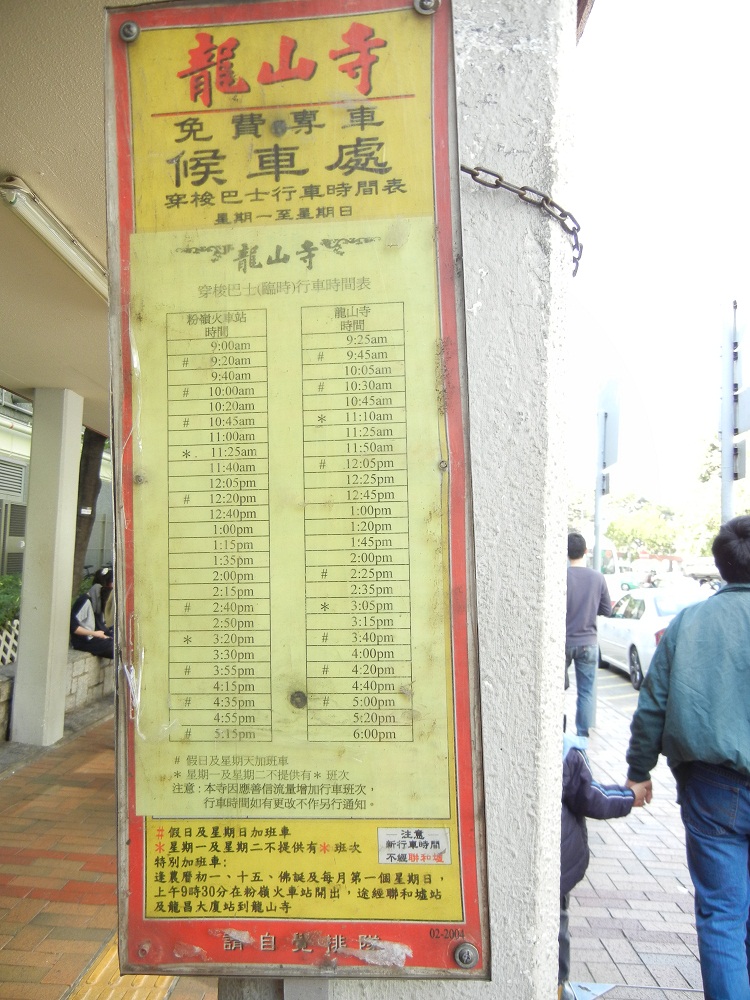 龍山寺
免費專車
候車處
穿梭巴士行車時間表
星期一至星期日
龍山寺
穿梭巴士(臨時)行車時間表
粉嶺火車站
時間
9:00am
# 9:20am
9:40am
# 10:00am
10:20am
# 10:45am
11:00am
* 11:25am
11:40am
12:05pm
# 12:20pm
12:40pm
1:00pm
1:15pm
1:35pm
2:00pm
2:15pm
# 2:40pm
2:50pm
* 3:20pm
3:30pm
# 3:55pm
4:15pm
# 4:35pm
4:55pm
# 5:15pm
龍山寺
時間
9:25am
# 9:45am
10:05am
# 10:30am
10:45am
* 11:10am
11:25am
11:50am
# 12:05pm
12:25pm
12:45pm
1:00pm
1:20pm
1:45pm
2:00pm
# 2:25pm
2:35pm
* 3:05pm
3:15pm
# 3:40pm
4:00pm
# 4:20pm
4:40pm
# 5:00pm
5:20pm
6:00pm
# 假日及星期天加班車
* 星期一及星期二不提供有 * 班次
注意：本寺因應善信流量增加行車班次，
行車時間如有更改不作另行通知。
# 假日及星期日加班車
* 星期一及星期二不提供有 * 班次
特別加班車：
逢農曆初一、十五、佛誕及每月第一個星期日，
上午9時30分在粉嶺火車站開出，途經聯和墟站
及龍昌大廈站到龍山寺
注意
新行車時間
不經聯和墟
請自覺排隊
02-2004